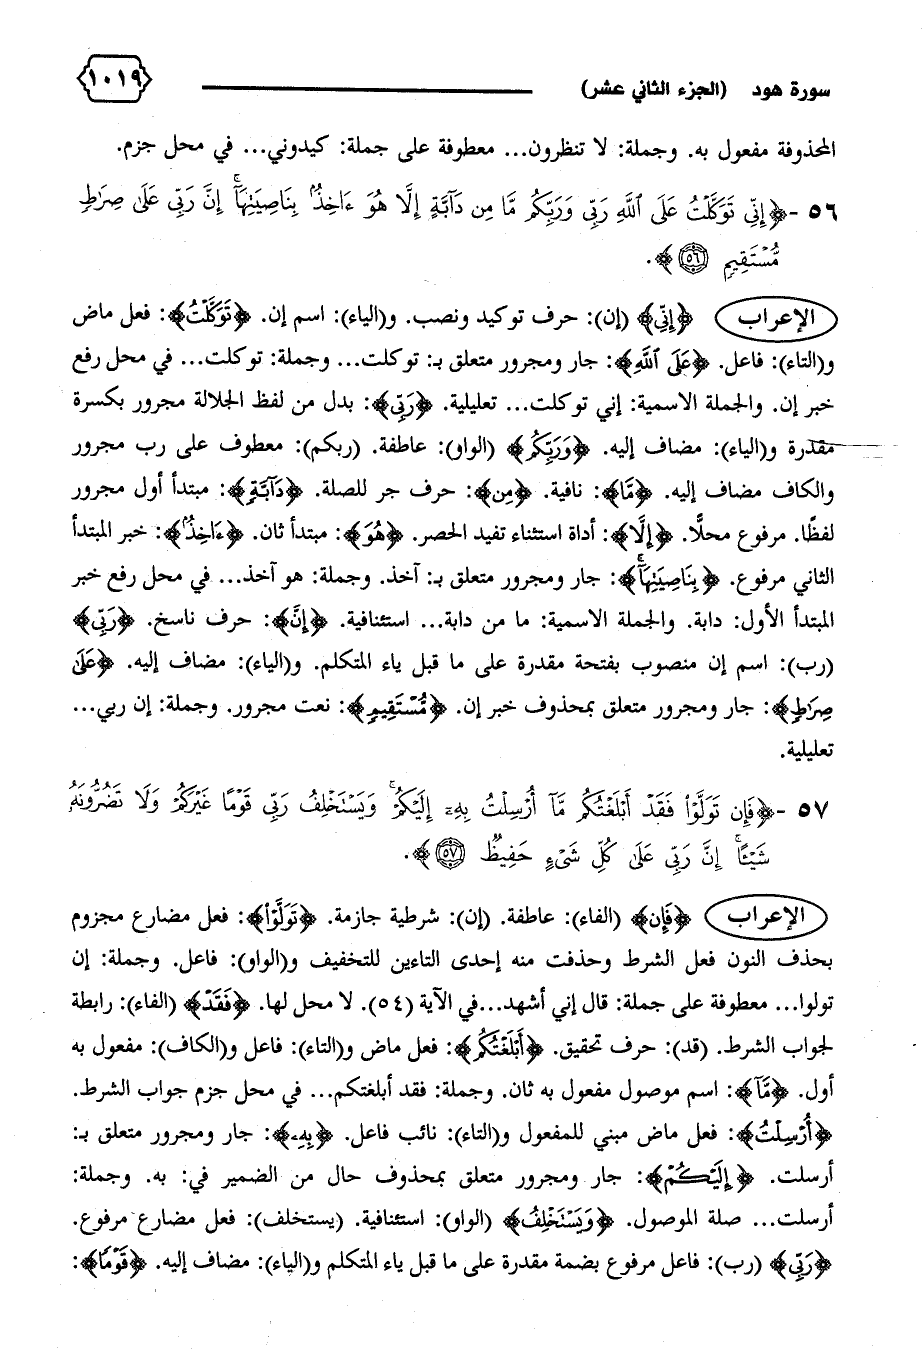 سورة هود (الجزء الثاني عشر) ١٠١٩
المحذوفة مفعول به. وجملة: لا تنظرون... معطوفة على جملة: كيدوني... في محل جزم.
٥٦ - ﴿إِنِّي تَوَكَّلْتُ عَلَى ٱللَّهِ رَبِّي وَرَبِّكُم مَّا مِن دَآبَّةٍ إِلَّا هُوَ ءَاخِذُۢ بِنَاصِيَتِهَآۚ إِنَّ رَبِّي عَلَىٰ صِرَٰطٍ
مُّسْتَقِيمٍ ۝٥٦﴾.
الإعراب ﴿إِنِّي﴾ (إن): حرف توكيد ونصب. و(الياء): اسم إن. ﴿تَوَكَّلْتُ﴾: فعل ماض
و(التاء): فاعل. ﴿عَلَى ٱللَّهِ﴾: جار ومجرور متعلق بـ: توكلت... وجملة: توكلت... في محل رفع
خبر إن. والجملة الاسمية: إني توكلت... تعليلية. ﴿رَبِّي﴾: بدل من لفظ الجلالة مجرور بكسرة
مقدرة و(الياء): مضاف إليه. ﴿وَرَبِّكُم﴾ (الواو): عاطفة. (ربكم): معطوف على رب مجرور
والكاف مضاف إليه. ﴿مَّا﴾: نافية. ﴿مِن﴾: حرف جر للصلة. ﴿دَآبَّةٍ﴾: مبتدأ أول مجرور
لفظًا. مرفوع محلًا. ﴿إِلَّا﴾: أداة استثناء تفيد الحصر. ﴿هُوَ﴾: مبتدأ ثان. ﴿ءَاخِذُۢ﴾: خبر المبتدأ
الثاني مرفوع. ﴿بِنَاصِيَتِهَآۚ﴾: جار ومجرور متعلق بـ: آخذ. وجملة: هو آخذ... في محل رفع خبر
المبتدأ الأول: دابة. والجملة الاسمية: ما من دابة... استئنافية. ﴿إِنَّ﴾: حرف ناسخ. ﴿رَبِّي﴾
(رب): اسم إن منصوب بفتحة مقدرة على ما قبل ياء المتكلم. و(الياء): مضاف إليه. ﴿عَلَىٰ
صِرَٰطٍ﴾: جار ومجرور متعلق بمحذوف خبر إن. ﴿مُّسْتَقِيمٍ﴾: نعت مجرور. وجملة: إن ربي...
تعليلية.
٥٧ - ﴿فَإِن تَوَلَّوْا۟ فَقَدْ أَبْلَغْتُكُم مَّآ أُرْسِلْتُ بِهِۦٓ إِلَيْكُمْۚ وَيَسْتَخْلِفُ رَبِّي قَوْمًا غَيْرَكُمْ وَلَا تَضُرُّونَهُۥ
شَيْـًٔاۚ إِنَّ رَبِّي عَلَىٰ كُلِّ شَىْءٍ حَفِيظٌ ۝٥٧﴾.
الإعراب ﴿فَإِن﴾ (الفاء): عاطفة. (إن): شرطية جازمة. ﴿تَوَلَّوْا۟﴾: فعل مضارع مجزوم
بحذف النون فعل الشرط وحذفت منه إحدى التاءين للتخفيف و(الواو): فاعل. وجملة: إن
تولوا... معطوفة على جملة: قال إني أشهد...في الآية (٥٤). لا محل لها. ﴿فَقَدْ﴾ (الفاء): رابطة
لجواب الشرط. (قد): حرف تحقيق. ﴿أَبْلَغْتُكُم﴾: فعل ماض و(التاء): فاعل و(الكاف): مفعول به
أول. ﴿مَّآ﴾: اسم موصول مفعول به ثان. وجملة: فقد أبلغتكم... في محل جزم جواب الشرط.
﴿أُرْسِلْتُ﴾: فعل ماض مبني للمفعول و(التاء): نائب فاعل. ﴿بِهِۦٓ﴾: جار ومجرور متعلق بـ:
أرسلت. ﴿إِلَيْكُمْ﴾: جار ومجرور متعلق بمحذوف حال من الضمير في: به. وجملة:
أرسلت... صلة الموصول. ﴿وَيَسْتَخْلِفُ﴾ (الواو): استئنافية. (يستخلف): فعل مضارع مرفوع.
﴿رَبِّي﴾ (رب): فاعل مرفوع بضمة مقدرة على ما قبل ياء المتكلم و(الياء): مضاف إليه. ﴿قَوْمًا﴾: